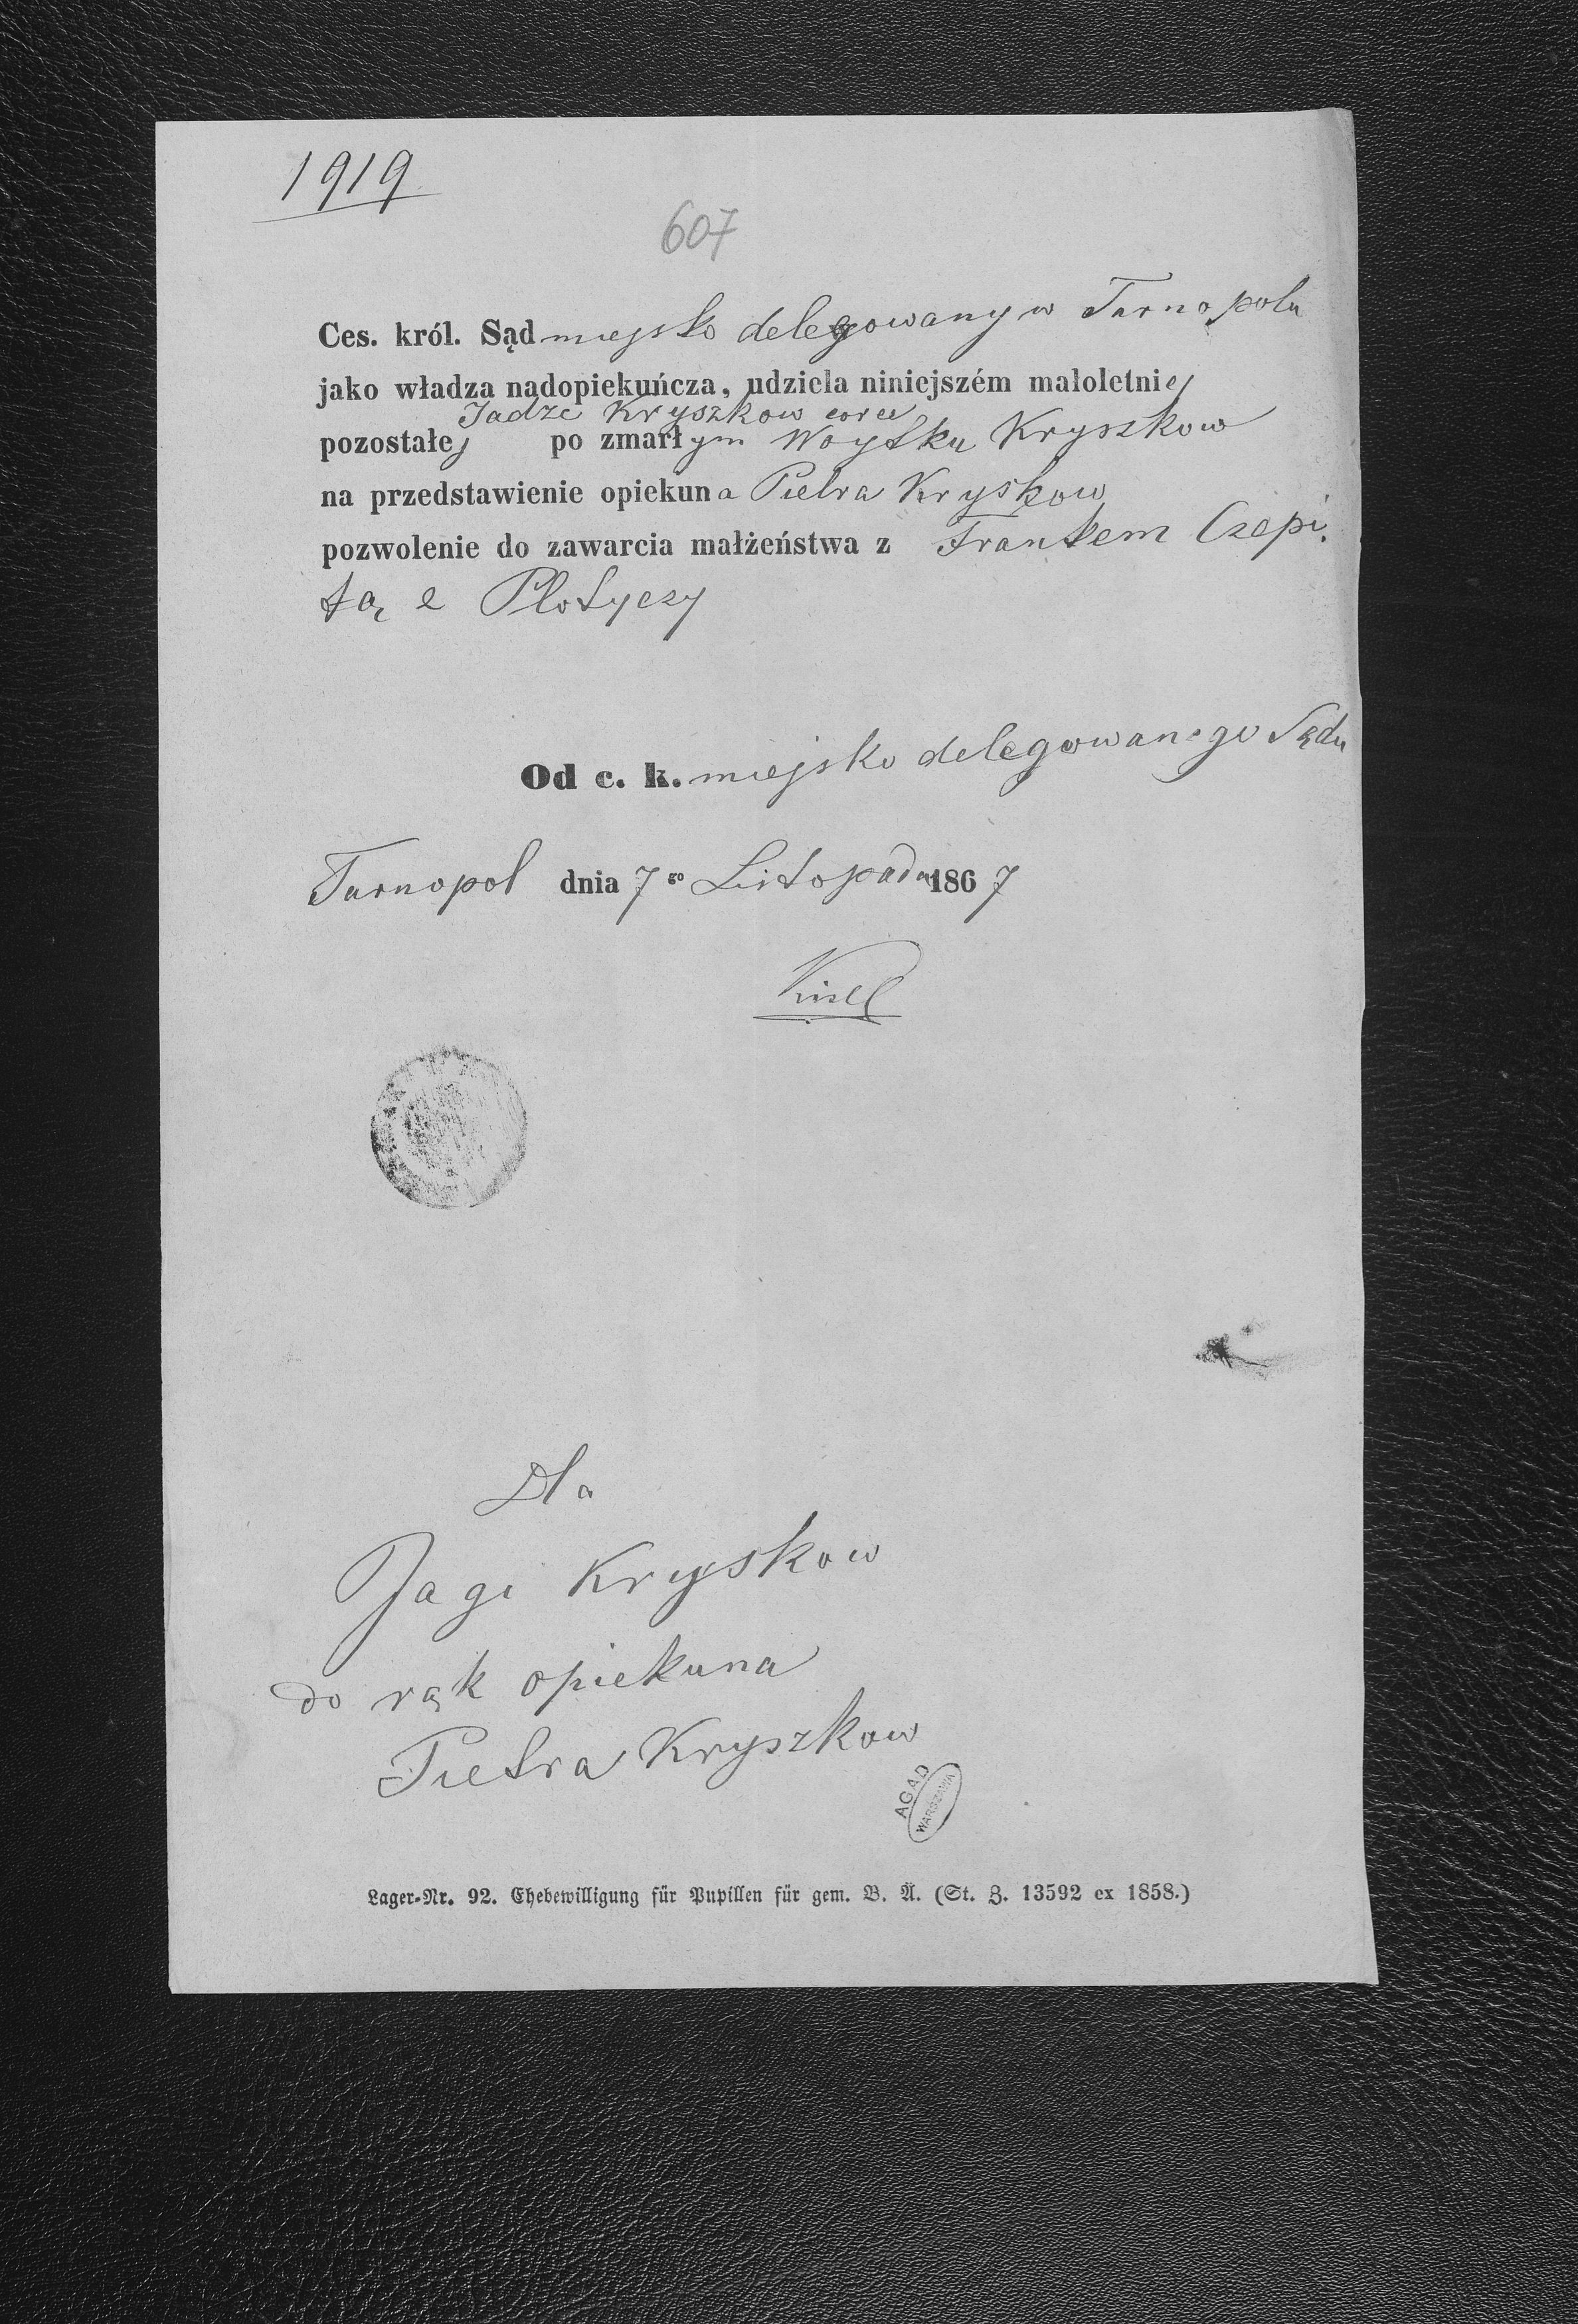 1919
607
Ces. król. Sąd miejsko delegowany w Tarnopolu
jako władza nadopiekuńcza, udziela niniejszém małoletniej
Jadze Kryszkow corce
pozostałej po zmarłym Woytku Kryszkow
na przedstawienie opiekuna Pietra Kryskow
pozwolenie do zawarcia małżeństwa z Frankem Czepi.
tą z Płotyczy
Od c. k. miejsko delegowanego Sądu
Tarnopol dnia 7go Listopada 1867
Dla
Jagi Kryskow
do rąk opiekuna
Pietra Kryszkow
AGAD
WARSZAWA
Lager-Nr. 92. Ehebewilligung für Pupillen für gem. B. Ä. (St. Z. 13592 ex 1858.)